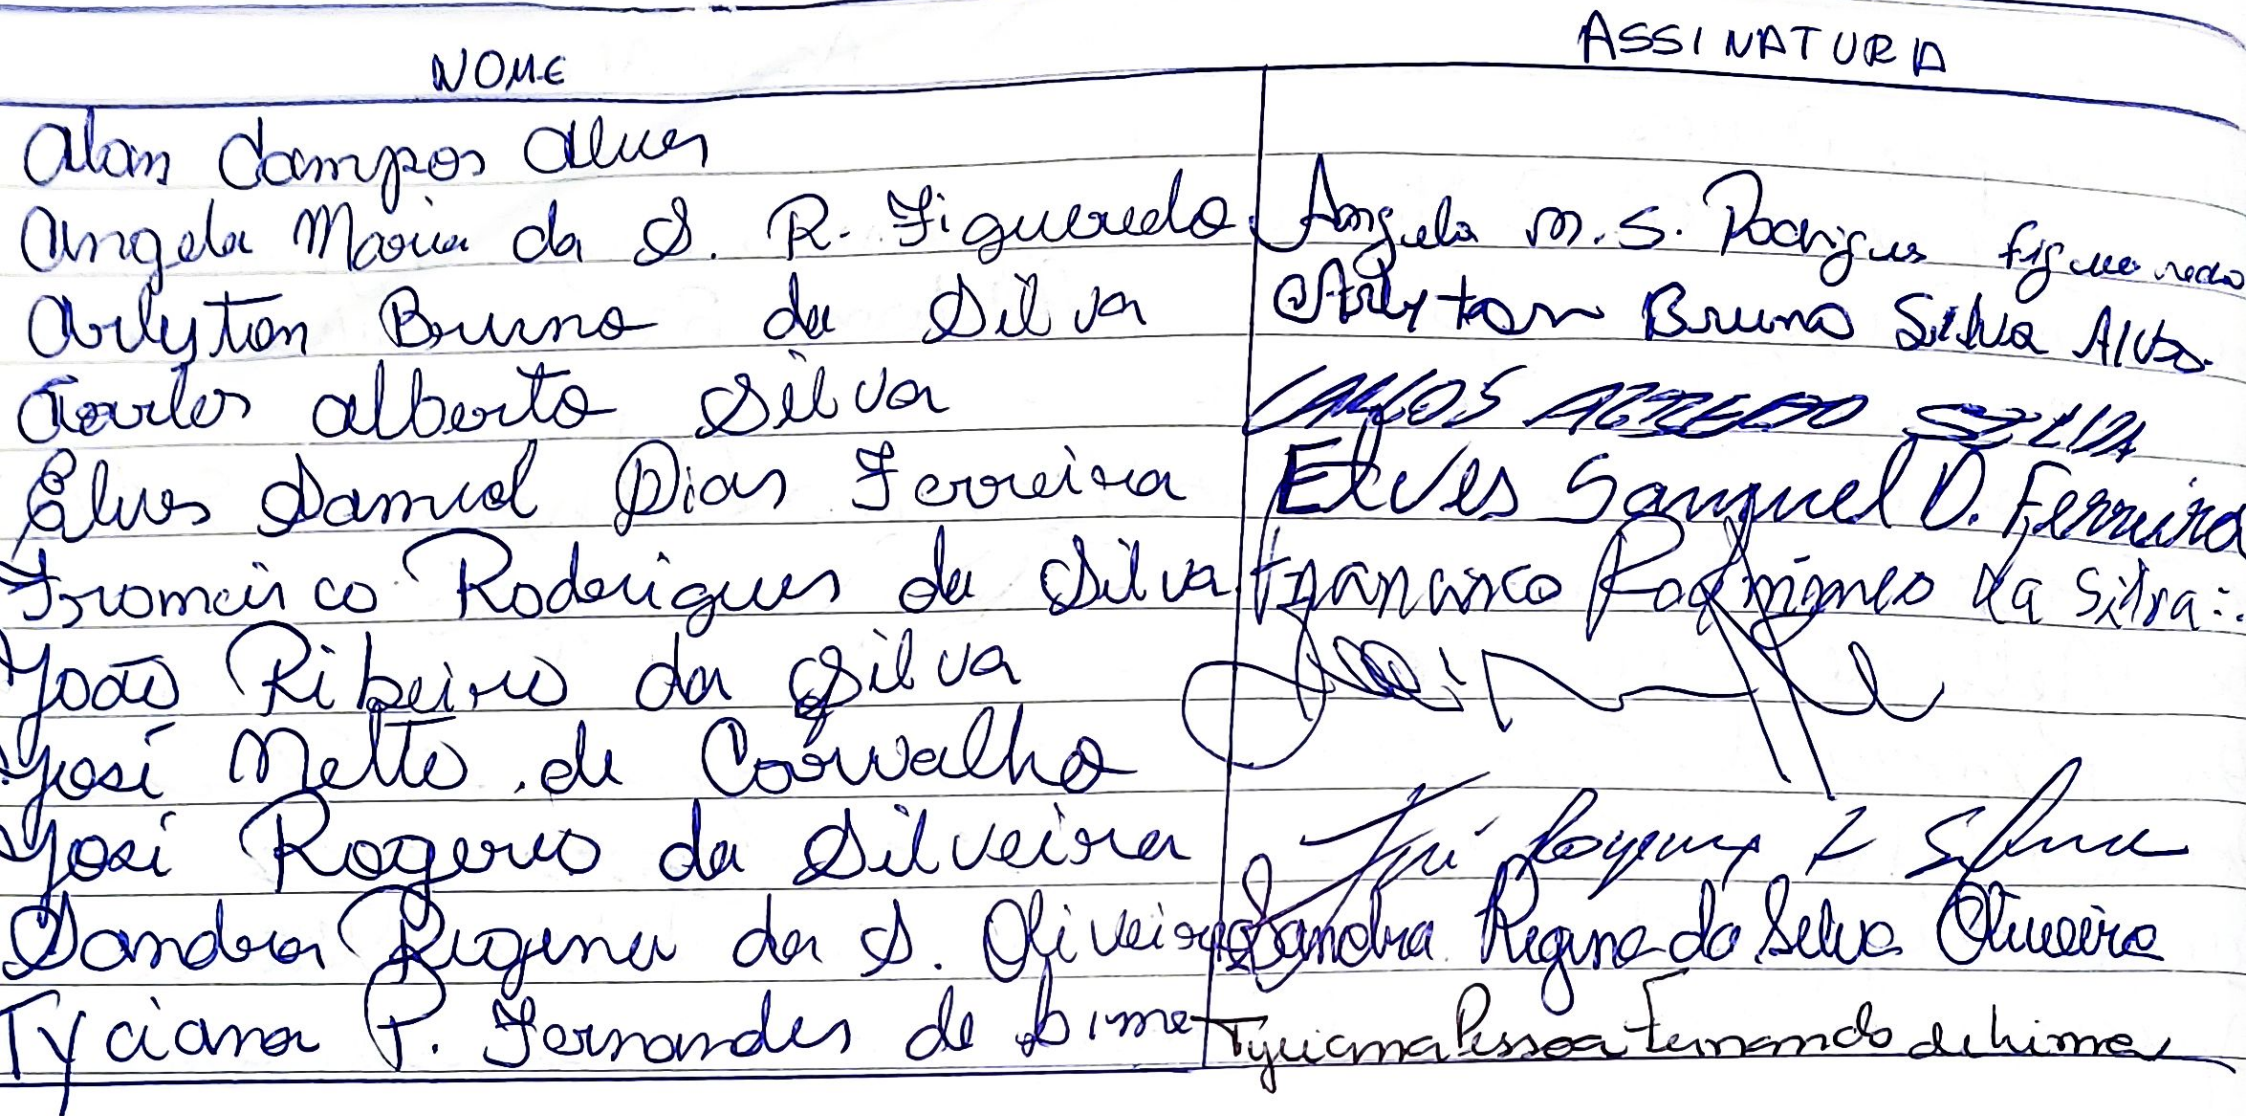 NOME ASSINATURA
Alan Campos Alves
Angela Maria da S. R. Figueredo Angela M. S. Rodrigues figueredo
Arlyton Bruno da Silva Arlyton Bruno Silva Alves.
Carlos Alberto Silva CARLOS ALBERTO SILVA
Elves Samuel Dias Ferreira Elves Samuel D. Ferreira
Francisco Rodrigues da Silva Francisco Rodrigues da Silva
João Ribeiro da Silva
José Netto de Carvalho
José Rogerio da Silveira José
Sandra Regina da S. Oliveira Sandra Regina da Silva Oliveira
Tyciana P. Fernandes de Lima Tyciana Pessoa Fernandes de Lima